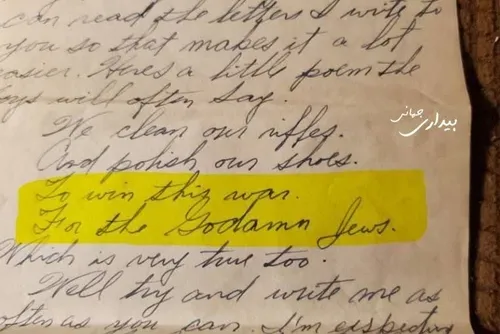 can read the letters I write to
you so that makes it a lot
easier. Heres a little poem the
boys will often say.
We clean our rifles.
And polish our shoes.
To win this war.
For the Godamn Jews.
Which is very true too.
Well try and write me as
often as you can. I'm expecting
بیداری جهانی